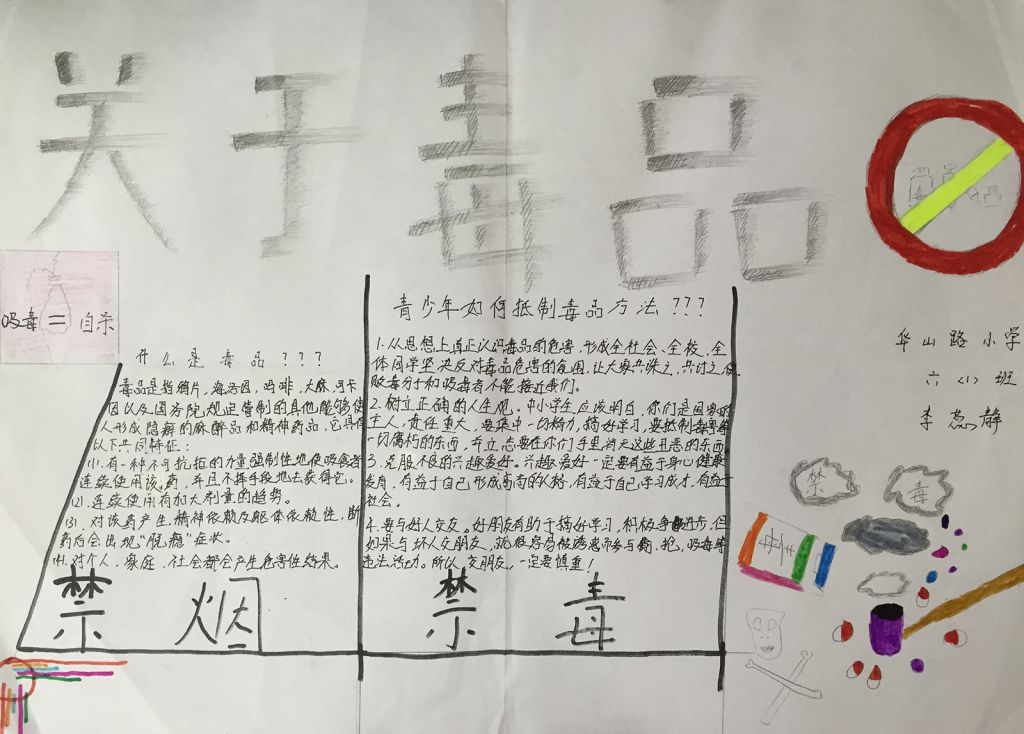 关于毒品
吸毒=自杀
什么是毒品???
毒品是指鸦片,海洛因,吗啡,大麻,可卡
因以及国务院规定管制的其他能够使
人形成隐癖的麻醉品和精神药品,它具有
以下共同特征:
(1).有一种不可抗拒的力量强制性地使吸食者
连续使用该药,并且不择手段地去获得它。
(2).连续使用有加大剂量的趋势。
(3).对该药产生精神依赖及躯体依赖性,断
药后会出现“脱瘾”症状。
(4).对个人,家庭,社会都会产生危害性结果。
禁烟
青少年如何抵制毒品方法???
1.从思想上真正认识毒品的危害,形成全社会、全校,全
体同学坚决反对毒品危害的氛围,让大家共诛之,共讨之,使
贩毒分子和吸毒者不能接近我们。
2.树立正确的人生观。中小学生应该明白,你们是国家的
主人,责任重大,要集中一切精力,搞好学习,要抵制毒害等
一切腐朽的东西,并立志要在你们手里消灭这些丑恶的东西
3.克服不良的兴趣爱好。兴趣爱好一定要有益于身心健康
发育,有益于自己形成高尚的人格,有益于自己学习成才,有益于
社会。
4.要与好人交友。好朋友有助于搞好学习,积极争进步,但
如果与坏人交朋友,就很容易被诱惑而参与抢,吸毒等
违法活动。所以,交朋友,一定要慎重!
禁毒
华山路小学
六〈1〉班
李蕊静
禁
毒